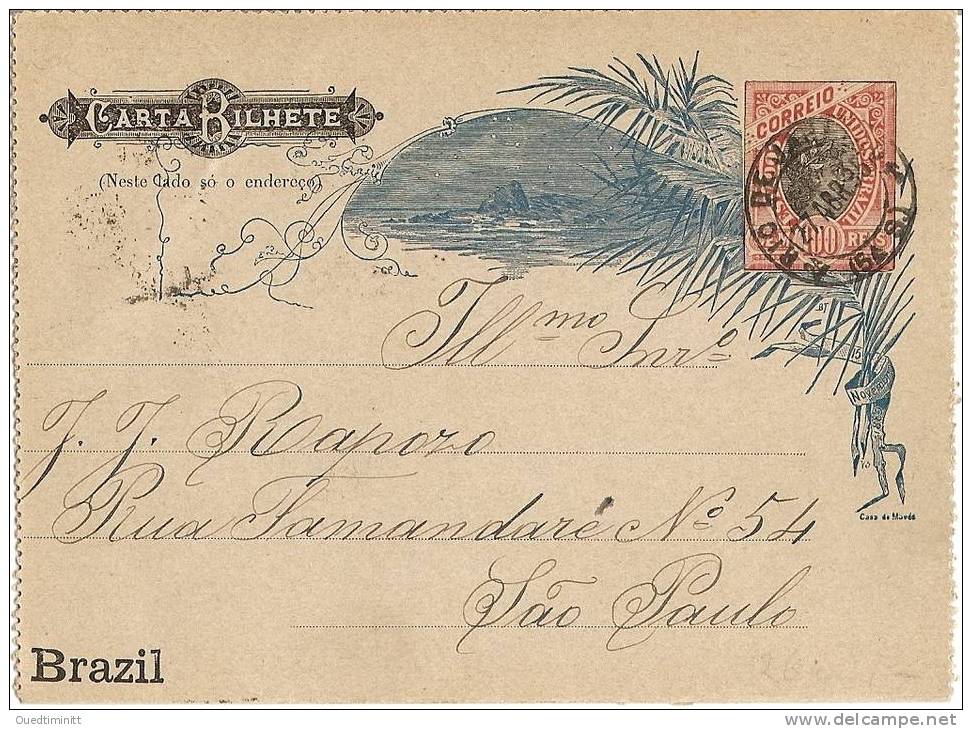 CARTA BILHETE
(Neste lado só o endereço)
CORREIO
UNIDOS
100 REIS
RIO DE
27 MAR
Ill.mo Snr.o
J. J. Rapozo
Rua Tamandaré No. 54
São Paulo
15
Novembro
Casa da Moeda
Brazil
Ouedtiminitt
www.delcampe.net